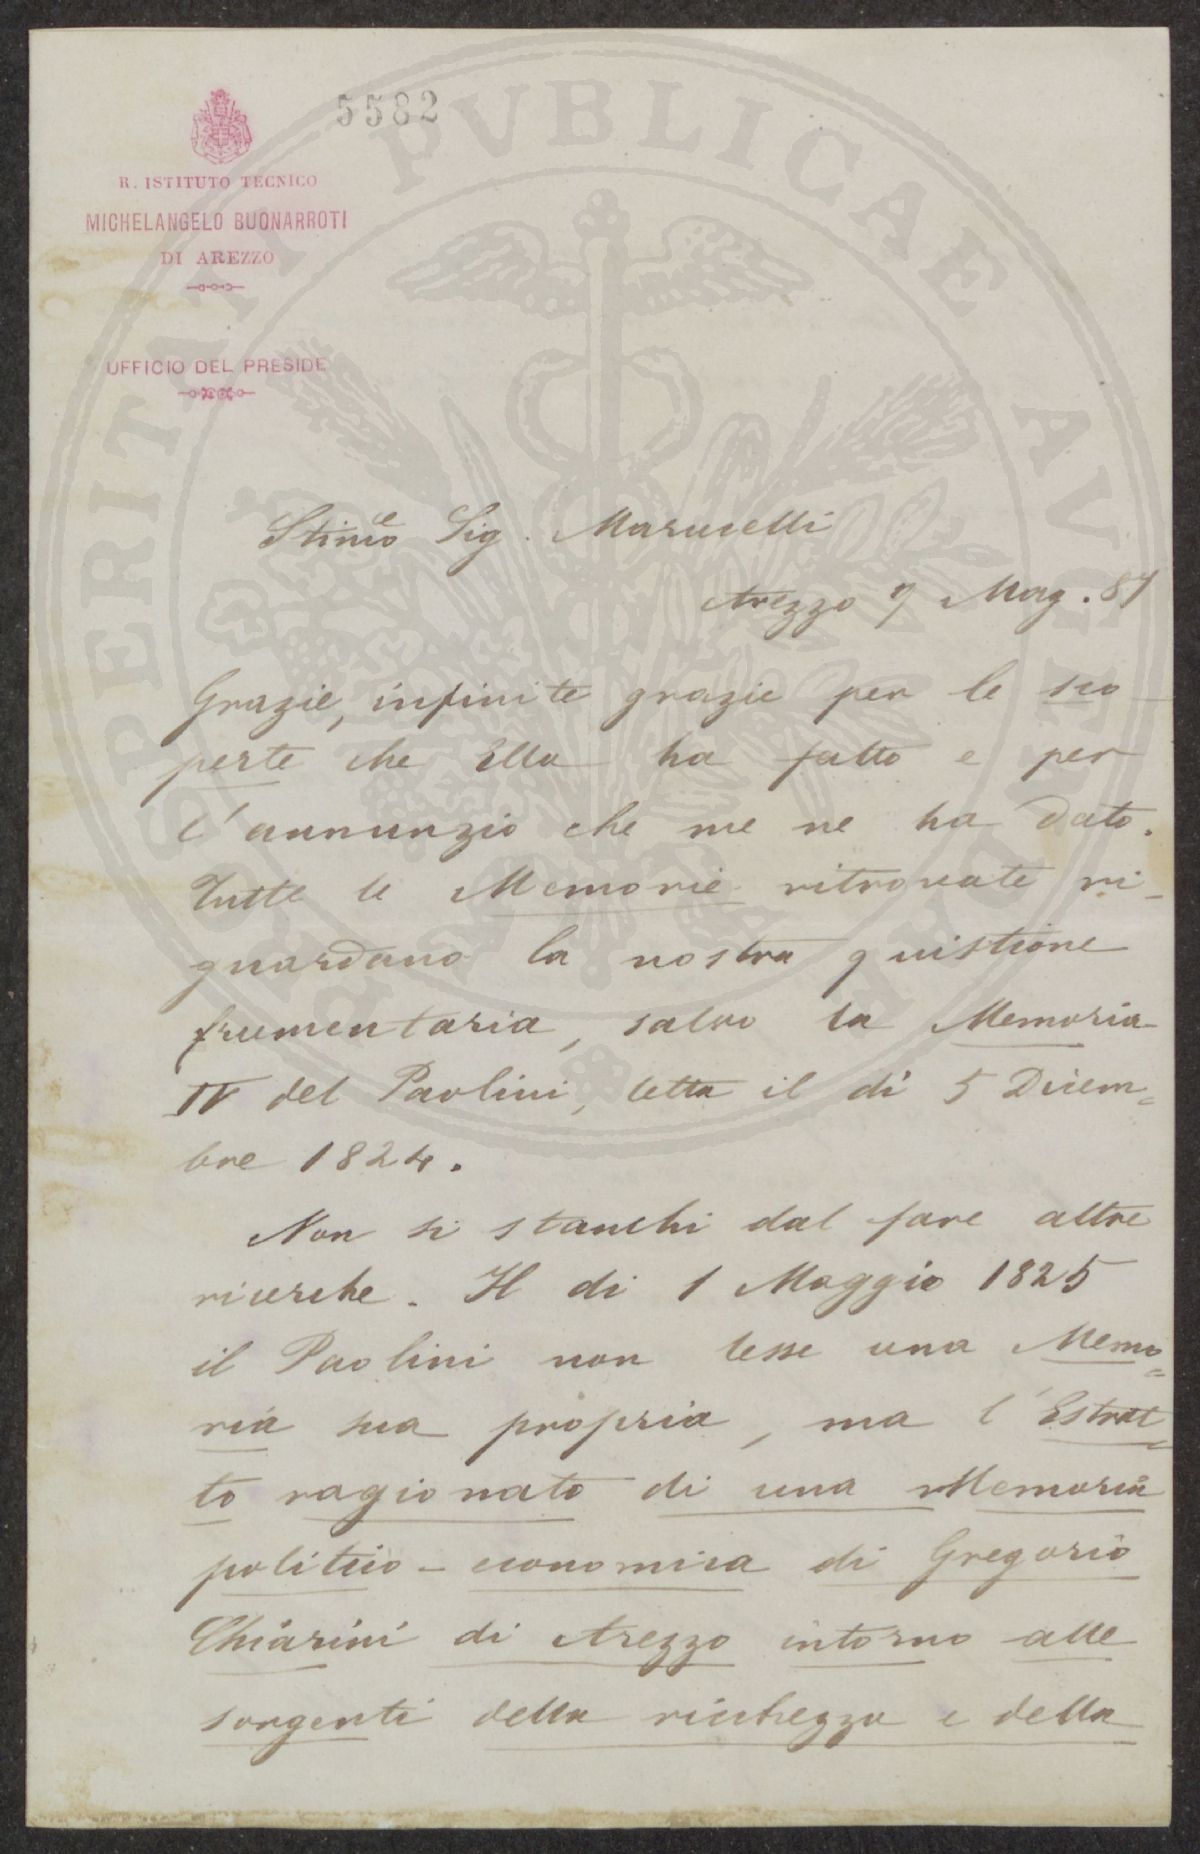 5582
R. ISTITUTO TECNICO
MICHELANGELO BUONARROTI
DI AREZZO
UFFICIO DEL PRESIDE
PROSPERITATI PVBLICAE AVGENDAE
Stimo Sig. Marucelli
Arezzo 7 Mag. 87
Grazie, infinite grazie per le sco
perte che Ella ha fatto e per
l'annunzio che me ne ha dato.
Tutte le Memorie ritrovate ri-
guardano la nostra quistione
frumentaria, salvo la Memoria
IV del Paolini, letta il dì 5 Dicem=
bre 1824.
Non si stanchi dal fare altre
ricerche. Il dì 1 Maggio 1825
il Paolini non lesse una Memo=
ria sua propria, ma l'Estrat=
to ragionato di una Memoria
politico-economica di Gregorio
Chiarini di Arezzo intorno alle
sorgenti della ricchezza e della